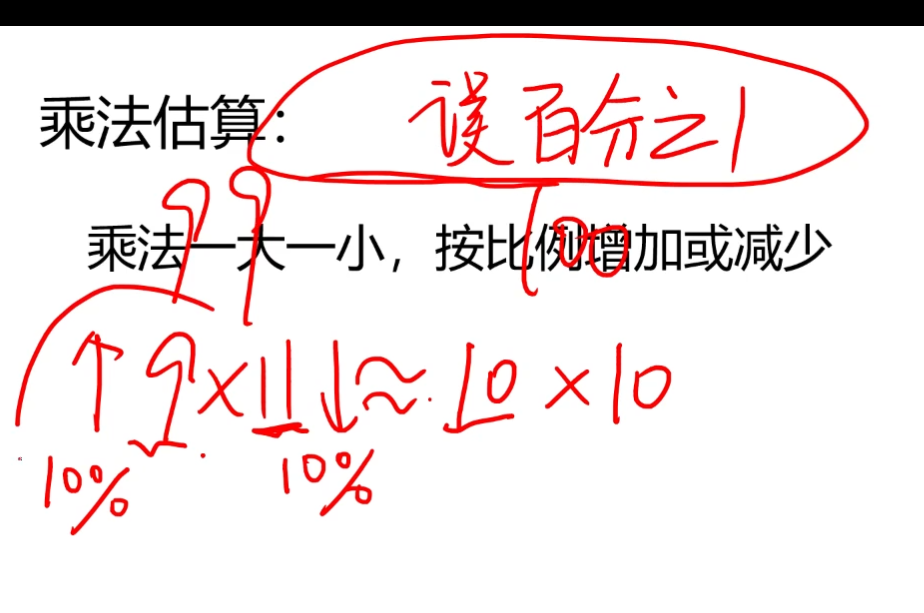 乘法估算：误百分之1
99 100
乘法一大一小，按比例增加或减少
↑9×11↓≈10×10
10% 10%